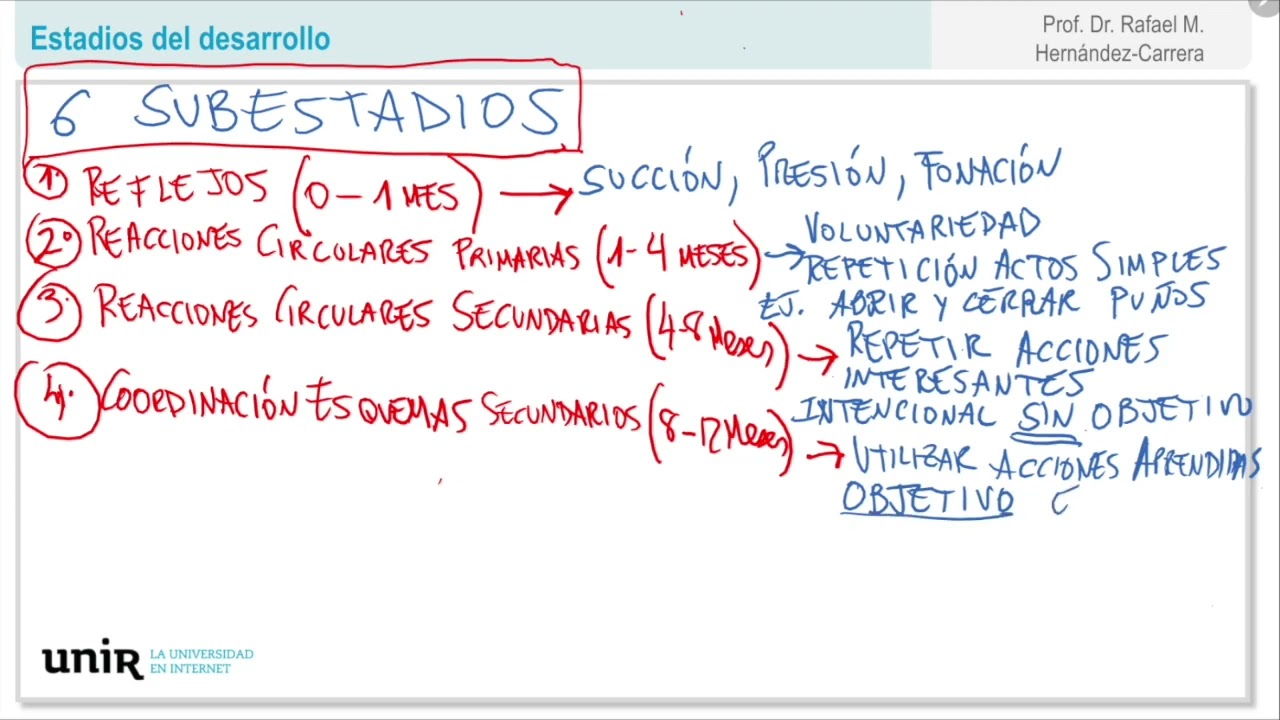 Estadios del desarrollo
Prof. Dr. Rafael M.
Hernández-Carrera
6 SUBESTADIOS
1º REFLEJOS (0 – 1 MES) → SUCCIÓN, PRESIÓN, FONACIÓN
2º REACCIONES CIRCULARES PRIMARIAS (1-4 MESES) → VOLUNTARIEDAD
REPETICIÓN ACTOS SIMPLES
EJ. ABRIR Y CERRAR PUÑOS
3. REACCIONES CIRCULARES SECUNDARIAS (4-8 MESES) → REPETIR ACCIONES
INTERESANTES
INTENCIONAL SIN OBJETIVO
4. COORDINACIÓN ESQUEMAS SECUNDARIOS (8-12 MESES) → UTILIZAR ACCIONES APRENDIDAS
OBJETIVO C
unir LA UNIVERSIDAD
EN INTERNET